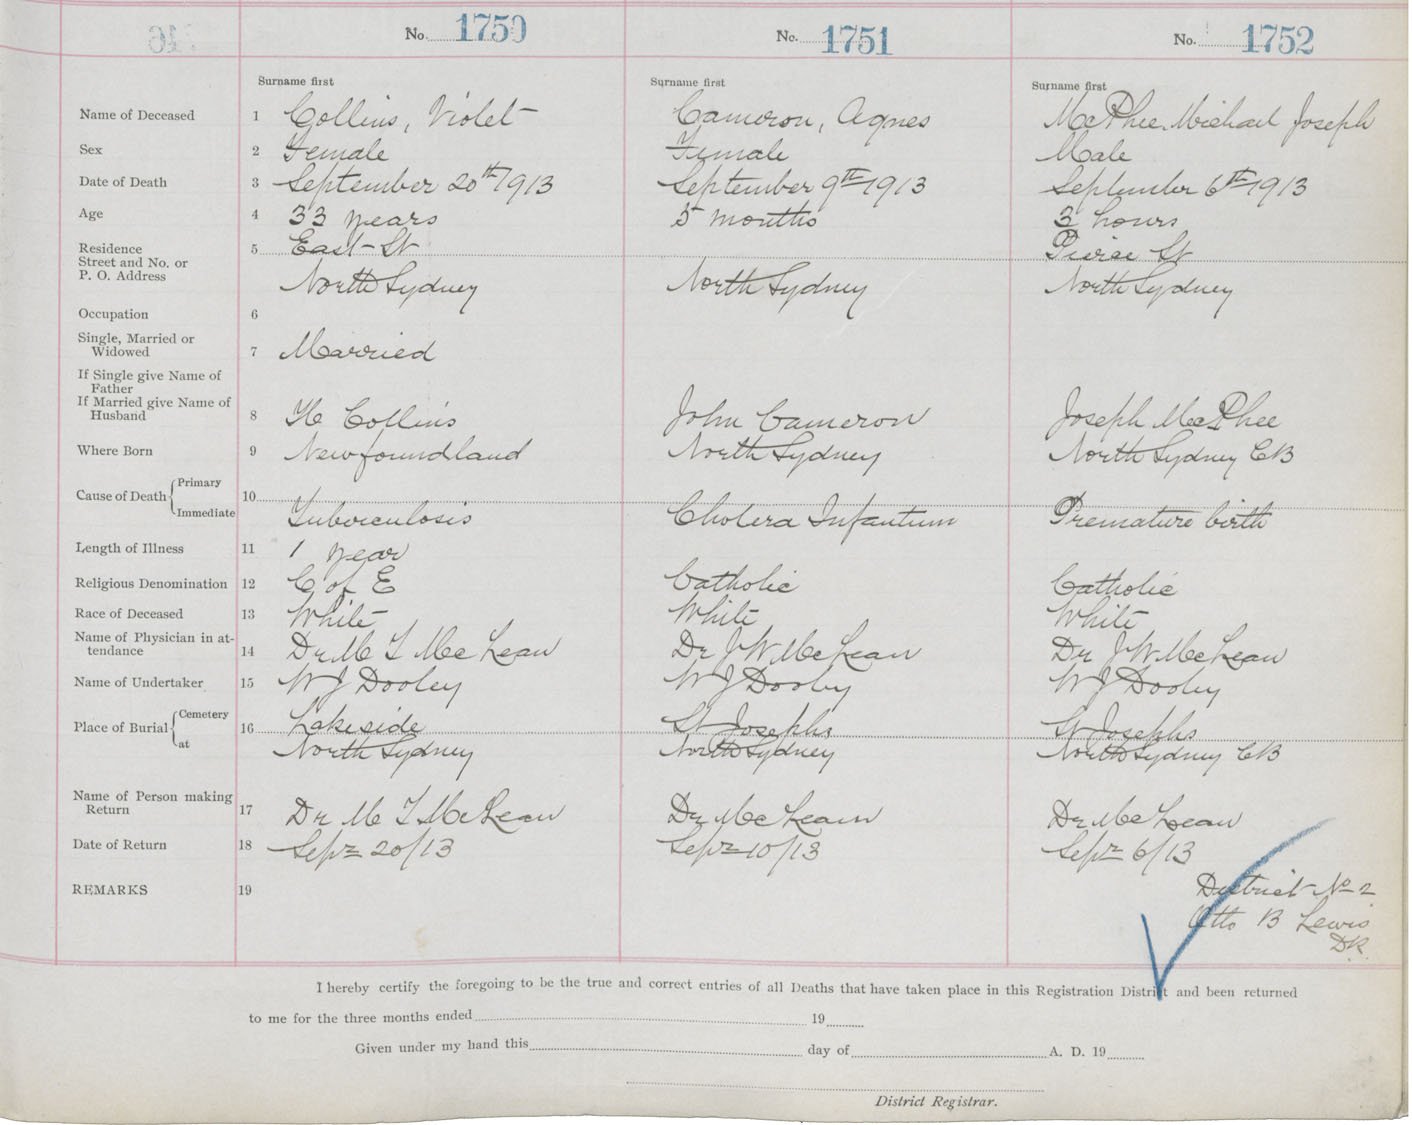 No. 1750 No. 1751 No. 1752
Surname first Surname first Surname first
Name of Deceased 1 Collins, Violet Cameron, Agnes McPhee, Michael Joseph
Sex 2 Female Female Male
Date of Death 3 September 20th 1913 September 9th 1913 September 6th 1913
Age 4 33 years 5 months 3 hours
Residence 5 East St Pierce St
Street and No. or
P. O. Address North Sydney North Sydney North Sydney
Occupation 6
Single, Married or
Widowed 7 Married
If Single give Name of
Father
If Married give Name of
Husband 8 H Collins John Cameron Joseph McPhee
Where Born 9 Newfoundland North Sydney North Sydney CB
Primary
Cause of Death 10
Immediate Tuborculosis Cholera Infantum Premature birth
Length of Illness 11 1 year
Religious Denomination 12 C of E Catholic Catholic
Race of Deceased 13 White White White
Name of Physician in at-
tendance 14 Dr M T McLean Dr J W McLean Dr J W McLean
Name of Undertaker 15 W J Dooley W J Dooley W J Dooley
Cemetery
Place of Burial 16 Lakeside St Josephs St Josephs
at North Sydney North Sydney North Sydney CB
Name of Person making
Return 17 Dr M T McLean Dr McLean Dr McLean
Date of Return 18 Sept 20/13 Sept 10/13 Sept 6/13
REMARKS 19 District No 2
Otto B Lewis
D.R.
I hereby certify the foregoing to be the true and correct entries of all Deaths that have taken place in this Registration District and been returned
to me for the three months ended 19
Given under my hand this day of A. D. 19
District Registrar.